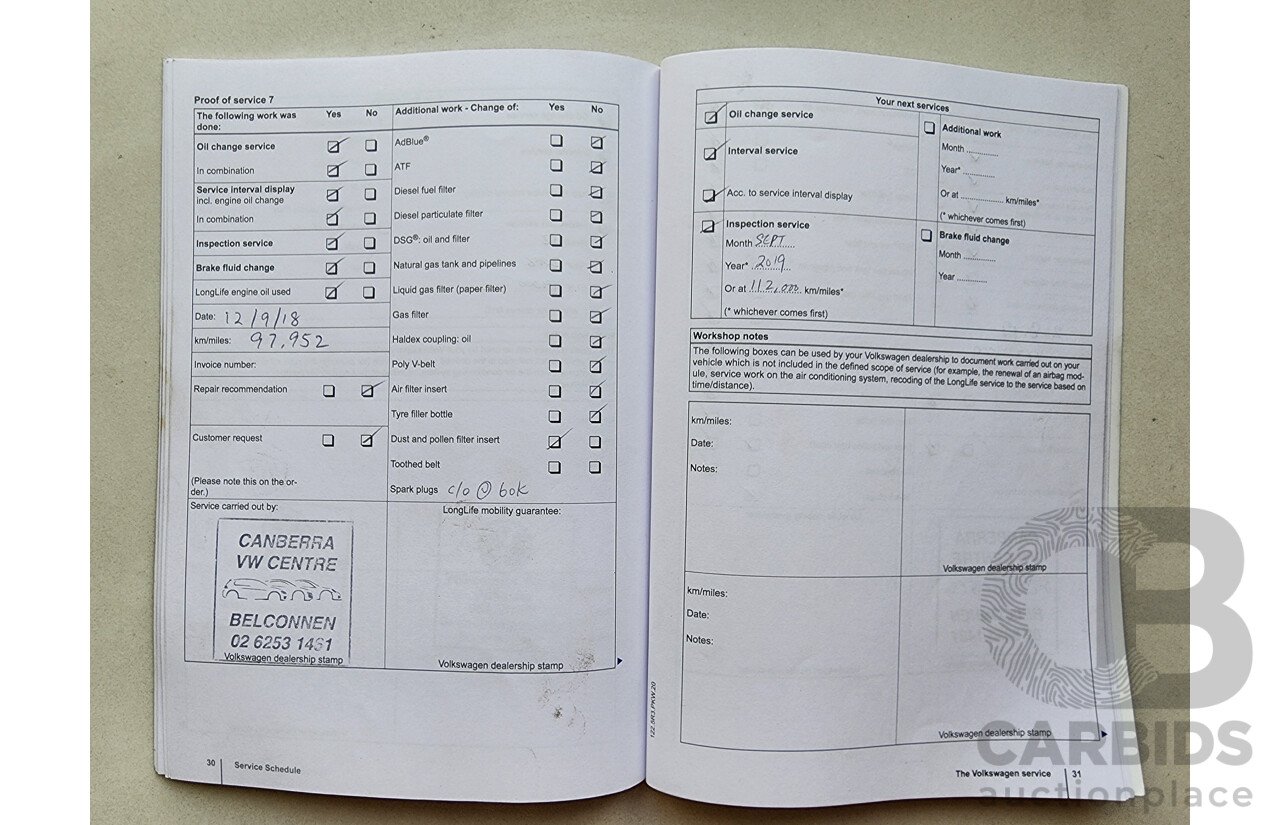 Proof of service 7
The following work was done: Yes No
Oil change service
In combination
Service interval display
incl. engine oil change
In combination
Inspection service
Brake fluid change
LongLife engine oil used
Date: 12/9/18
km/miles: 97,952
Invoice number:
Repair recommendation
Customer request
(Please note this on the or-
der.)
Additional work - Change of: Yes No
AdBlue®
ATF
Diesel fuel filter
Diesel particulate filter
DSG®: oil and filter
Natural gas tank and pipelines
Liquid gas filter (paper filter)
Gas filter
Haldex coupling: oil
Poly V-belt
Air filter insert
Tyre filler bottle
Dust and pollen filter insert
Toothed belt
Spark plugs c/o @ 60k
Service carried out by:
CANBERRA
VW CENTRE
BELCONNEN
02 6253 1461
Volkswagen dealership stamp
LongLife mobility guarantee:
Volkswagen dealership stamp
30 Service Schedule
122.5R3.PKW.20
Your next services
Oil change service
Interval service
Acc. to service interval display
Inspection service
Month SEPT
Year* 2019
Or at 112,000 km/miles*
(* whichever comes first)
Additional work
Month
Year*
Or at km/miles*
(* whichever comes first)
Brake fluid change
Month
Year
Workshop notes
The following boxes can be used by your Volkswagen dealership to document work carried out on your
vehicle which is not included in the defined scope of service (for example, the renewal of an airbag mod-
ule, service work on the air conditioning system, recoding of the LongLife service to the service based on
time/distance).
km/miles:
Date:
Notes:
Volkswagen dealership stamp
km/miles:
Date:
Notes:
Volkswagen dealership stamp
The Volkswagen service 31
CB
CARBIDS
auctionplace